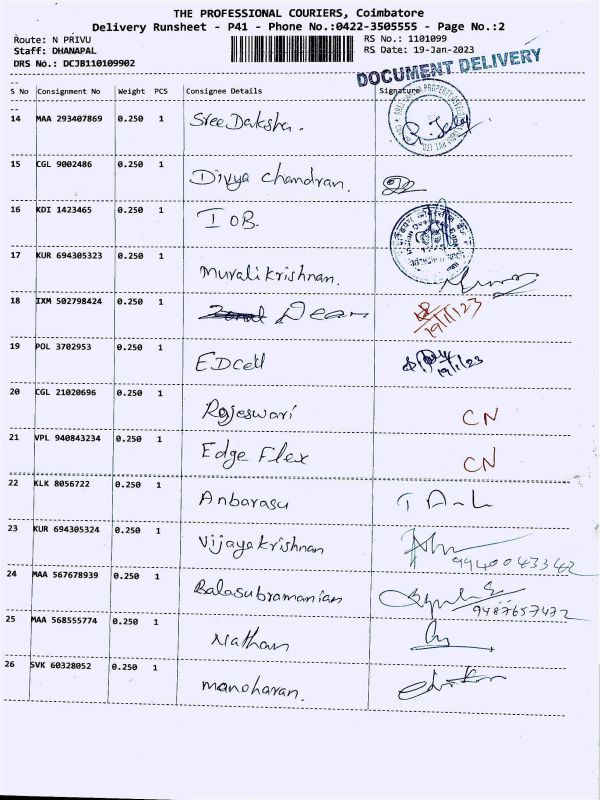 THE PROFESSIONAL COURIERS, Coimbatore
Delivery Runsheet - P41 - Phone No.:0422-3505555 - Page No.:2
Route: N PRIVU RS No.: 1101099
Staff: DHANAPAL RS Date: 19-Jan-2023
DRS No.: DCJB110109902
DOCUMENT DELIVERY
S No Consignment No Weight PCS Consignee Details Signature
14 MAA 293407869 0.250 1 Sree Daksha.
15 CGL 9002486 0.250 1 Divya Chandran.
16 KDI 1423465 0.250 1 IOB.
17 KUR 694305323 0.250 1 Muralikrishnan.
18 IXM 502798424 0.250 1 Dean 19/1/23
19 POL 3702953 0.250 1 EDCell 19/1/23
20 CGL 21020696 0.250 1 Rajeswari CN
21 VPL 940843234 0.250 1 Edge Flex CN
22 KLK 8056722 0.250 1 Anbarasu
23 KUR 694305324 0.250 1 Vijayakrishnan 9940043342
24 MAA 567678939 0.250 1 Balasubramanian 9487657472
25 MAA 568555774 0.250 1 Nathan
26 SVK 60328052 0.250 1 Manoharan.